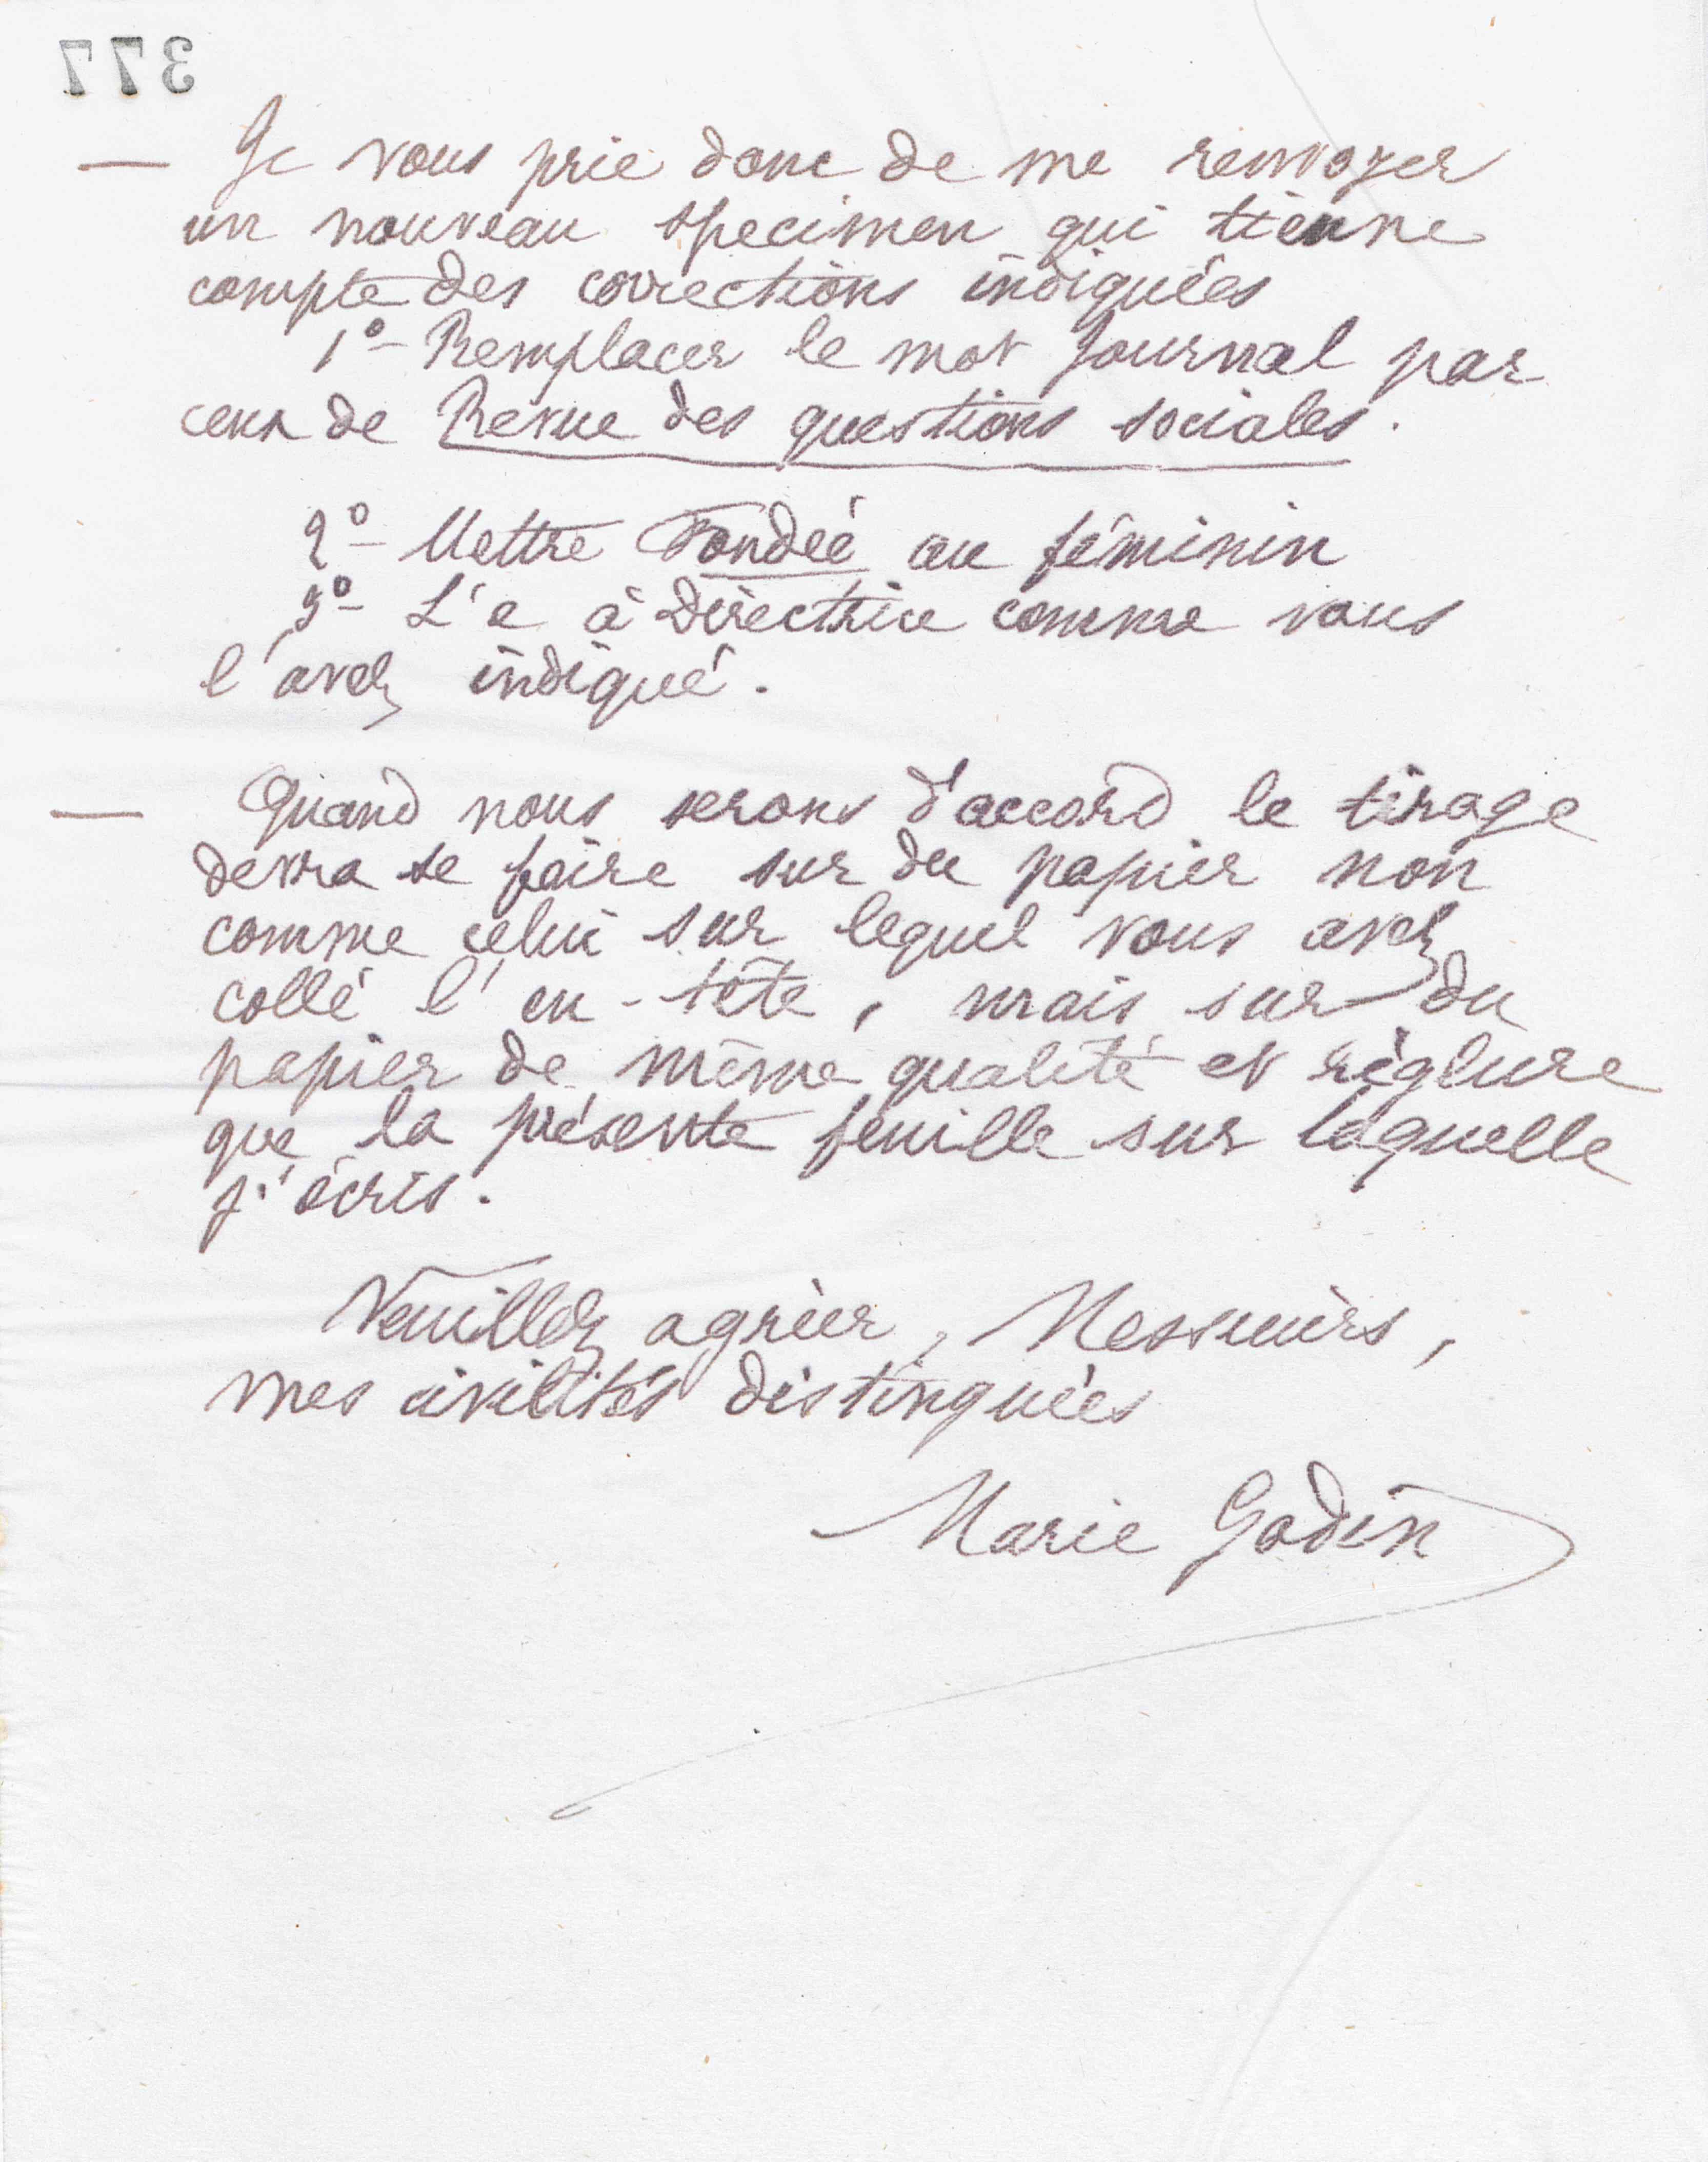 377
— Je vous prie donc de me renvoyer
un nouveau specimen qui tienne
compte des corrections indiquées
1º- Remplacer le mot Journal par
ceux de Revue des questions sociales.
2º- Mettre Fondée au féminin
3º- L'e à Directrice comme vous
l'avez indiqué.
— Quand nous serons d'accord le tirage
devra se faire sur du papier non
comme celui sur lequel vous avez
collé l'en-tête, mais sur du
papier de même qualité et réglure
que la présente feuille sur laquelle
j'écris.
Veuillez agréer, Messieurs,
mes civilités distinguées
Marie Godin